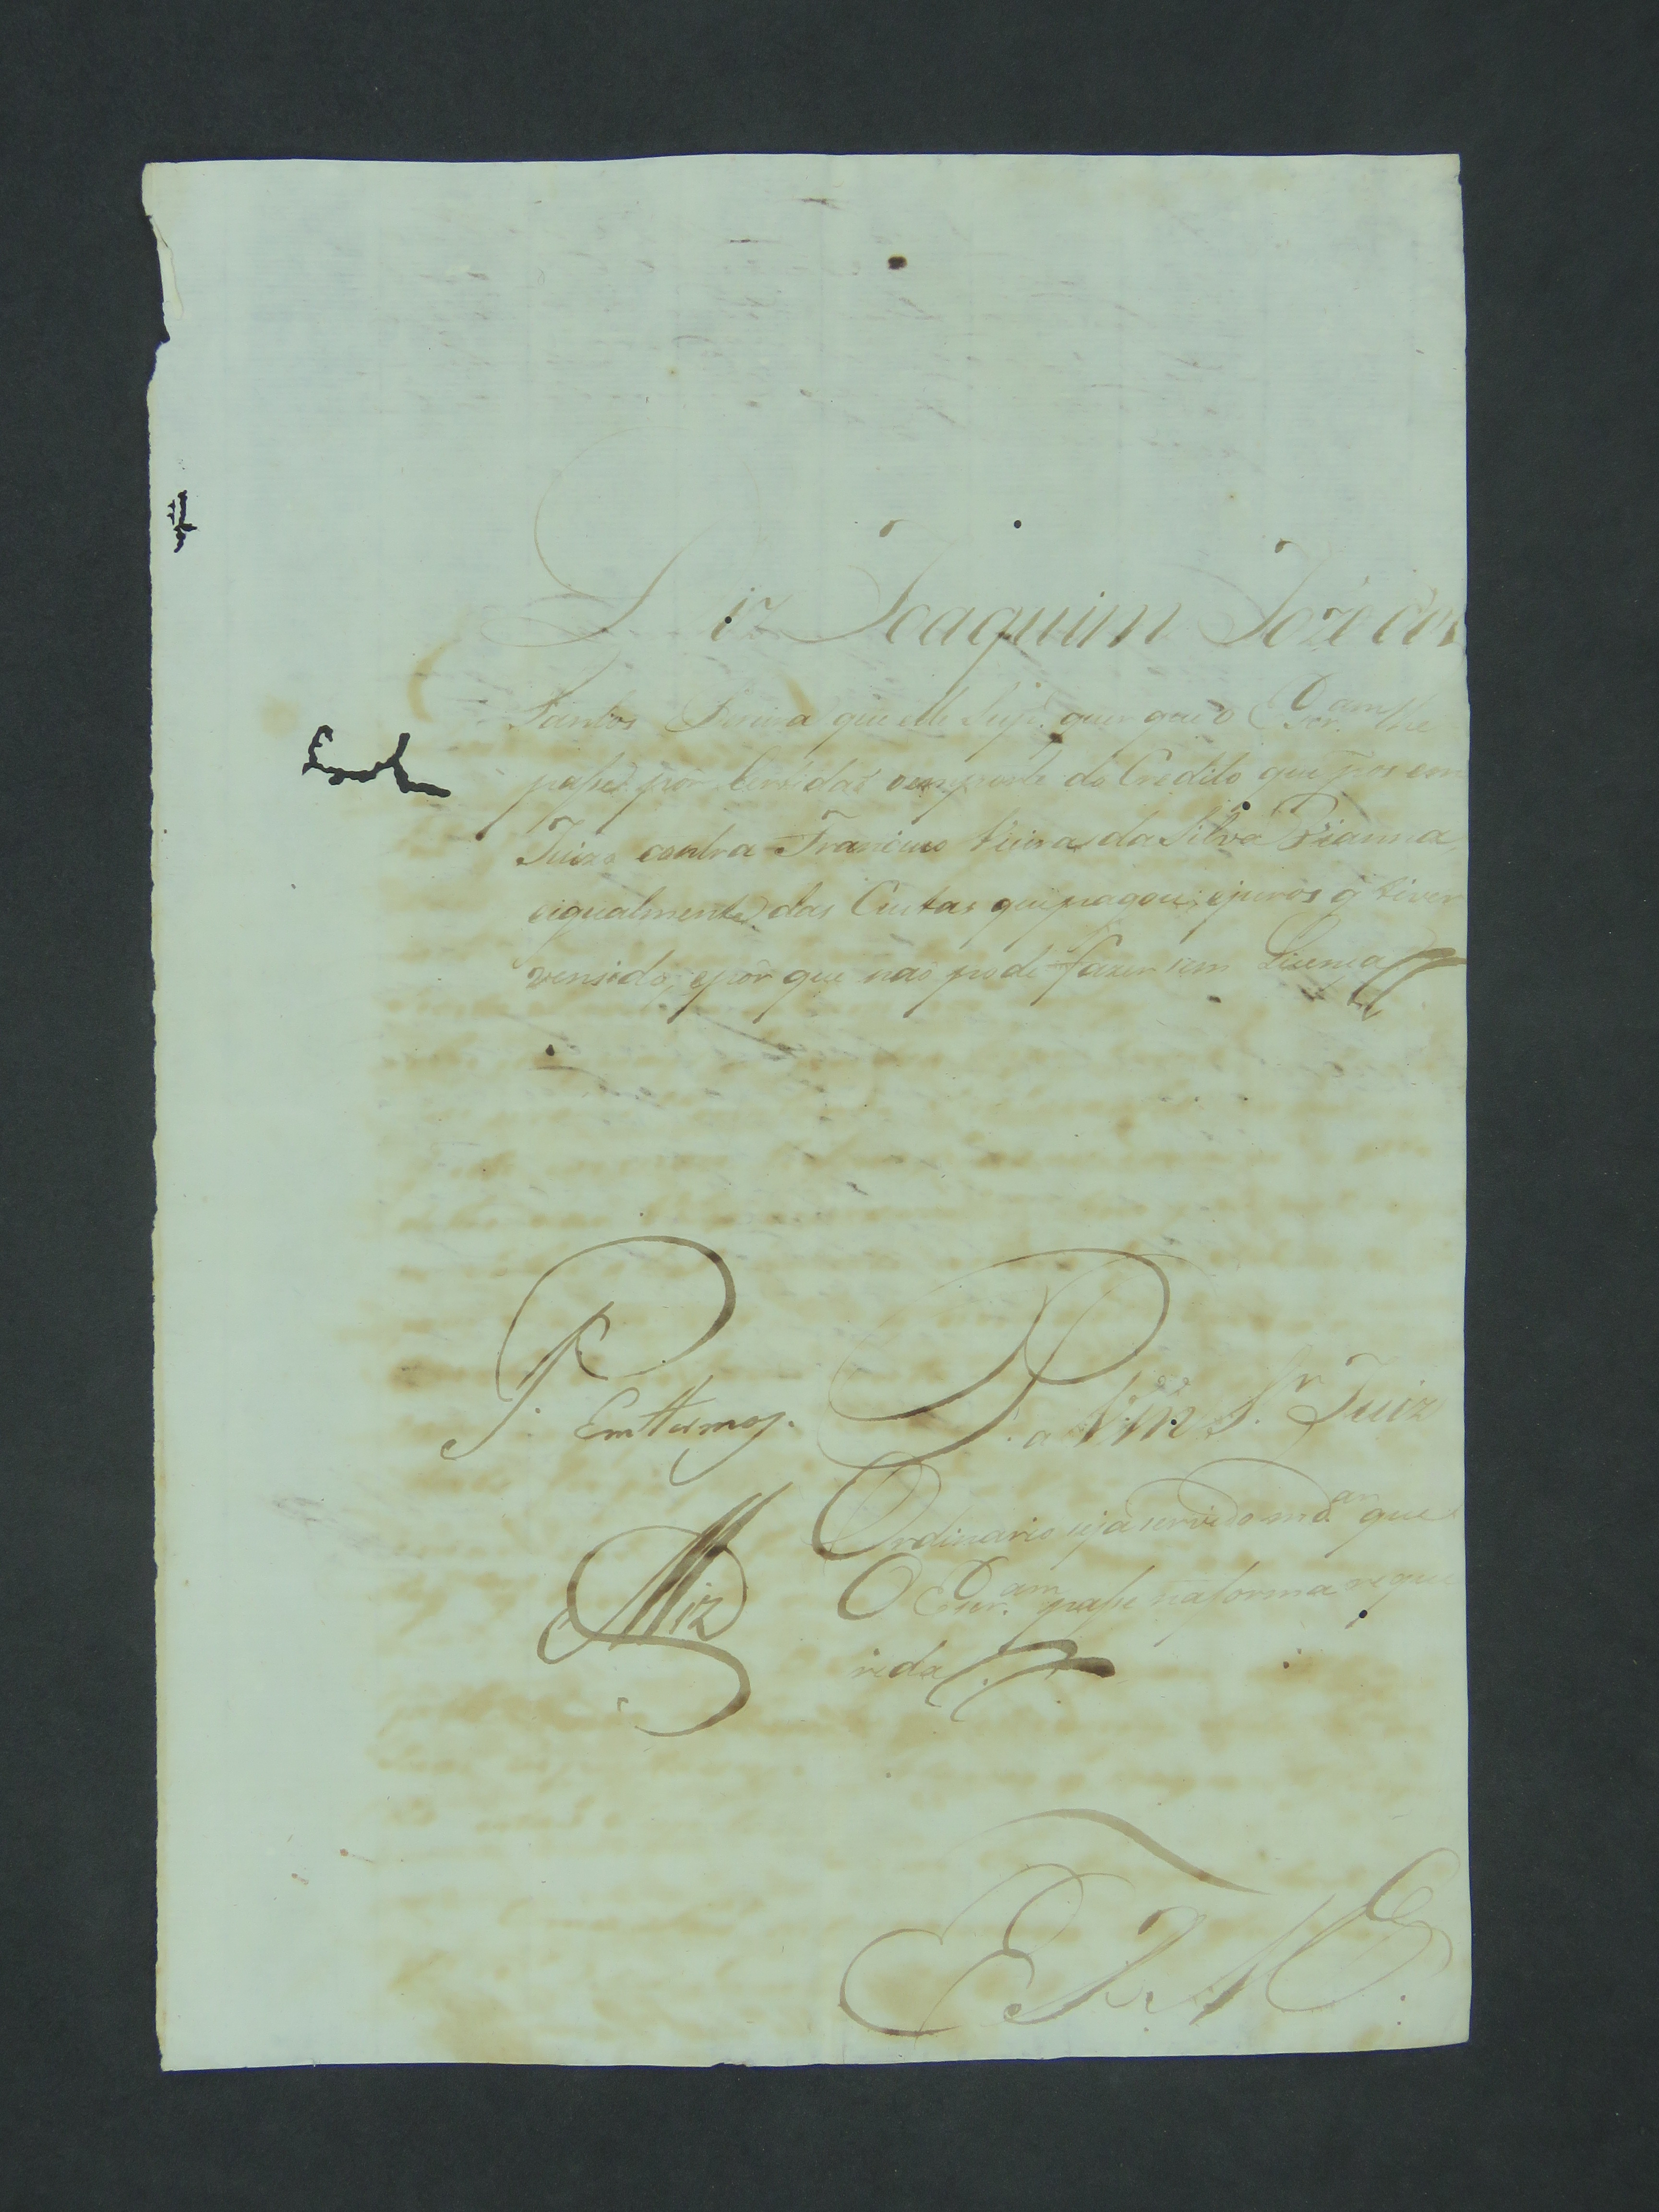 Diz Joaquim Jozé dos
Santos Pereira que elle Sup.e quer que o Escr.am lhe
pase por Certidaõ o importe do Credito que pos em
Juizo contra Francisco Vieira da Silva Vianna,
eigualmente das Custas que pagou, ejuros q tiver
vensido, epor que naõ pode fazer sem Licença
P. Em termos.
P. a Vm.ce S.r Juiz
Ordinario seja servido md.ar que
O Escr.am pase na forma reque
rida
E. R. M.